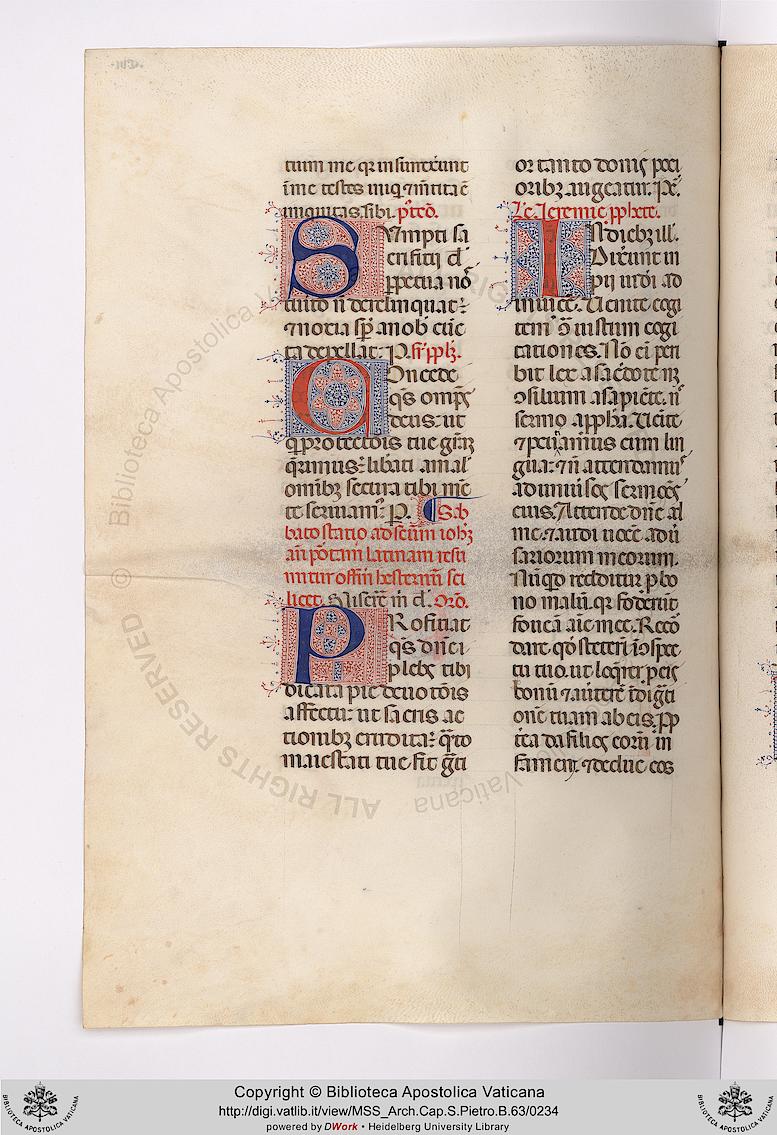 tium me qr insurrexunt
i me testes iniq̄ ⁊ mtita ē
iniquitas sibi. p̄ tcō.
Sumpti sa
crificij dn̄e
ppetua nos
tuitio nō derelinquat:
⁊ noxia sp̄ a nobis cūc
ta depellat: P. sr̄ pplm̄.
Concede
qs omps̄
deus: ut
q̄ protectōis tue grām
q̄rimus: libati a mal
omībꝫ secura tibi mēte
te seruiam'. P. Sab
bato statio ad scūm ioh'ꝫ
an̄ portam latinam resu
mitur offm̄ hesternum sci
licet. Miserē m̄ dn̄e. Orō.
Proficiat
qs dn̄e
plebs tibi
dicata pie deuotōis
affectu: ut sacris ac
tionibꝫ erudita: q̄nto
maiestati tue fit grāti
or tanto donis poti
oribꝫ augeatur. P.
Lc̄. Ieremie pphete.
In diebꝫ ill.
Dixerunt im
pij iudei ad
inuicē. Uenite cogi
tem' ꝯ iustum cogi
tationes. Nō ei peri
bit lex a sacerdote neqꝫ
ꝯsilium a sapiēte. nec
sermo a ppha. Uenite
⁊ percutiamus eum lin
gua: ⁊ nō attendamus
ad uniuersos sermones
eius. Attende dn̄e ad
me: ⁊ audi uocē aduer
sariorum meorum.
Nunqd redditur p bo
no malū. qr foderunt
foueā aīe mee. Recor
dare qd steterī ī ꝯspec
tu tuo. ut loqrer p eis
bonū ⁊ auerterē īdigna
tionē tuam ab eis. Pp
terea da filios eorum in
famem: ⁊ deduc eos
ALL RIGHTS RESERVED © Biblioteca Apostolica Vaticana
Copyright © Biblioteca Apostolica Vaticana
http://digi.vatlib.it/view/MSS_Arch.Cap.S.Pietro.B.63/0234
powered by DWork • Heidelberg University Library
BIBLIOTECA APOSTOLICA VATICANA
BIBLIOTECA APOSTOLICA VATICANA